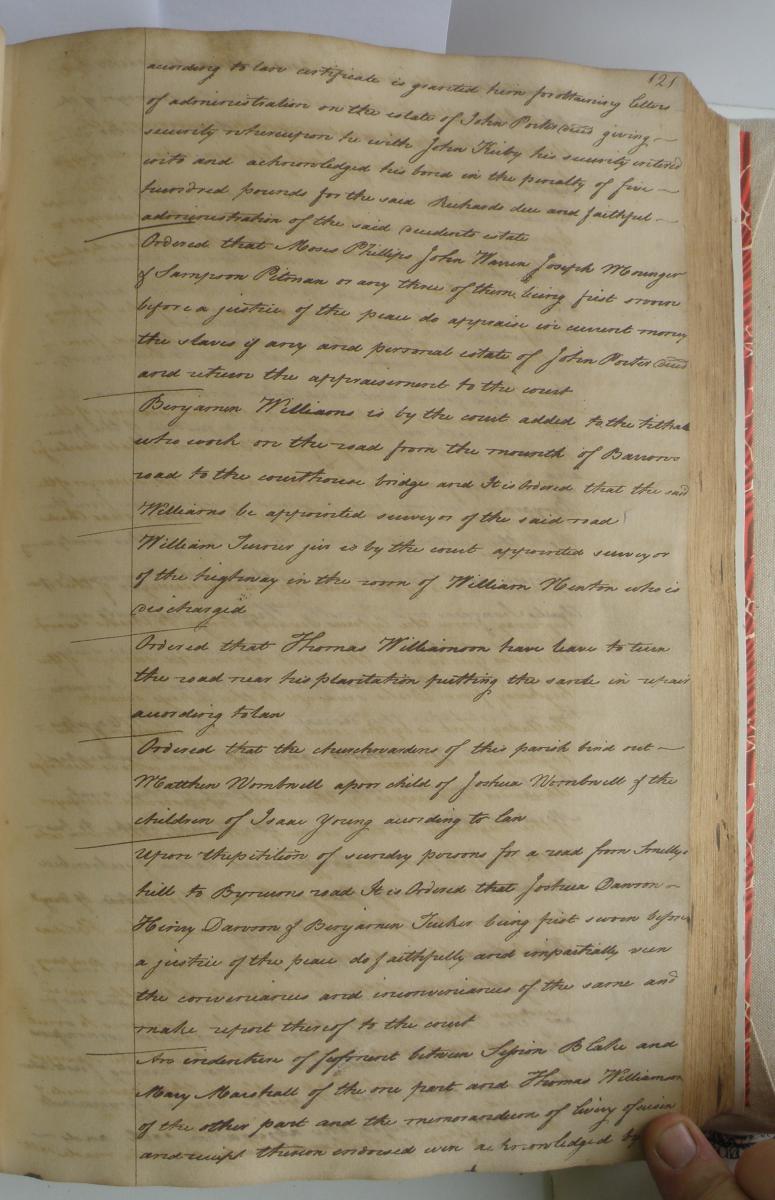 121
acording to law certificate is granted him for obtaining letters
of administration on the estate of John Porter decd giving
security whereupon he with John Kirby his security entered
into and acknowledged his bond in the penalty of five
hundred pounds for the said Richards due and faithful
administration of the said decedents estate
Ordered that Moses Phillips John Warren Joseph Mounger
& Sampson Pitman or any three of them being first sworn
before a justice of the peace do appraise in current money
the slaves if any and personal estate of John Porter decd
and return the appraisement to the court
Benjamin Williams is by the court added to the tithab
who work on the road from the mounth of Barrons
road to the courthouse bridge and It is Ordered that the said
Williams be appointed surveyor of the said road
William Turner junr is by the court appointed surveyor
of the highway in the room of William Henton who is
discharged
Ordered that Thomas Williamson have leave to turn
the road near his plantation putting the same in repair
acording to law
Ordered that the churchwardens of this parish bind out
Matthew Wombwell a poor child of Joshua Wombwell & the
children of Isaac Young acording to law
Upon the petition of sundry persons for a road from Smellys
hill to Byrmons road It is Ordered that Joshua Dawson
Henry Dawson & Benjamin Tucker being first sworn before
a justice of the peace do faithfully and impartially view
the conveniances and inconveniances of the same and
make report thereof to the court
An indenture of feofment between Blake and
Mary Marshall of the one part and Thomas Williamson
of the other part and the memorandum of livery of seisin
and receipt thereon endorsed were acknowledged by